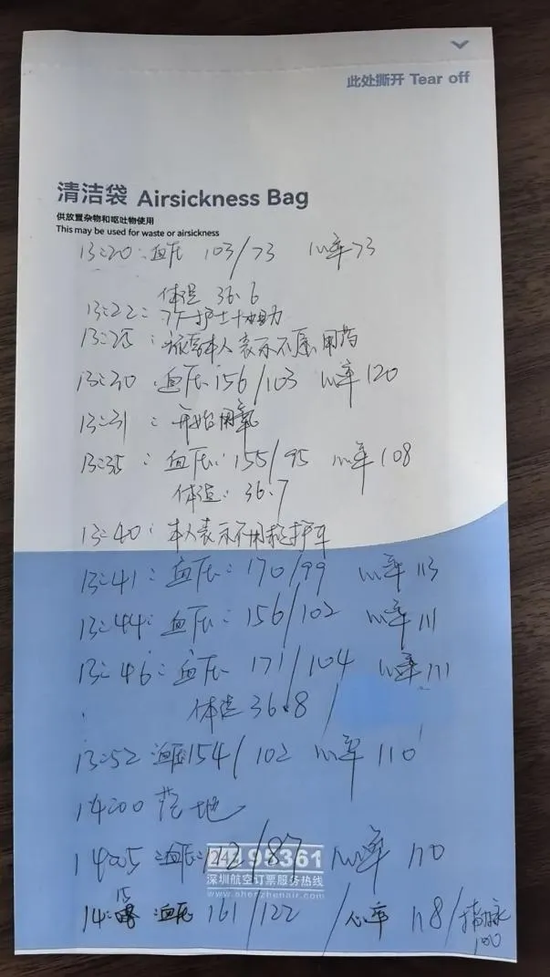 此处撕开 Tear off
清洁袋 Airsickness Bag
供放置杂物和呕吐物使用
This may be used for waste or airsickness
13:20: 血压 103/73 心率73
体温 36.6
13:22: 护士协助
13:25: 旅客本人表示不愿用药
13:30 血压:156/103 心率120
13:31: 开始用氧
13:35: 血压:155/95 心率108
体温:36.7
13:40: 本人表示不用救护车
13:41: 血压:170/99 心率113
13:44: 血压:156/102 心率111
13:46: 血压:171/104 心率111
体温36.8/
13:52 血压154/102 心率110
14:00落地
14:05 血压 /87 心率110
95361
深圳航空订票服务热线
www.shenzhenair.com
14:15 血压 161/122 心率 118/